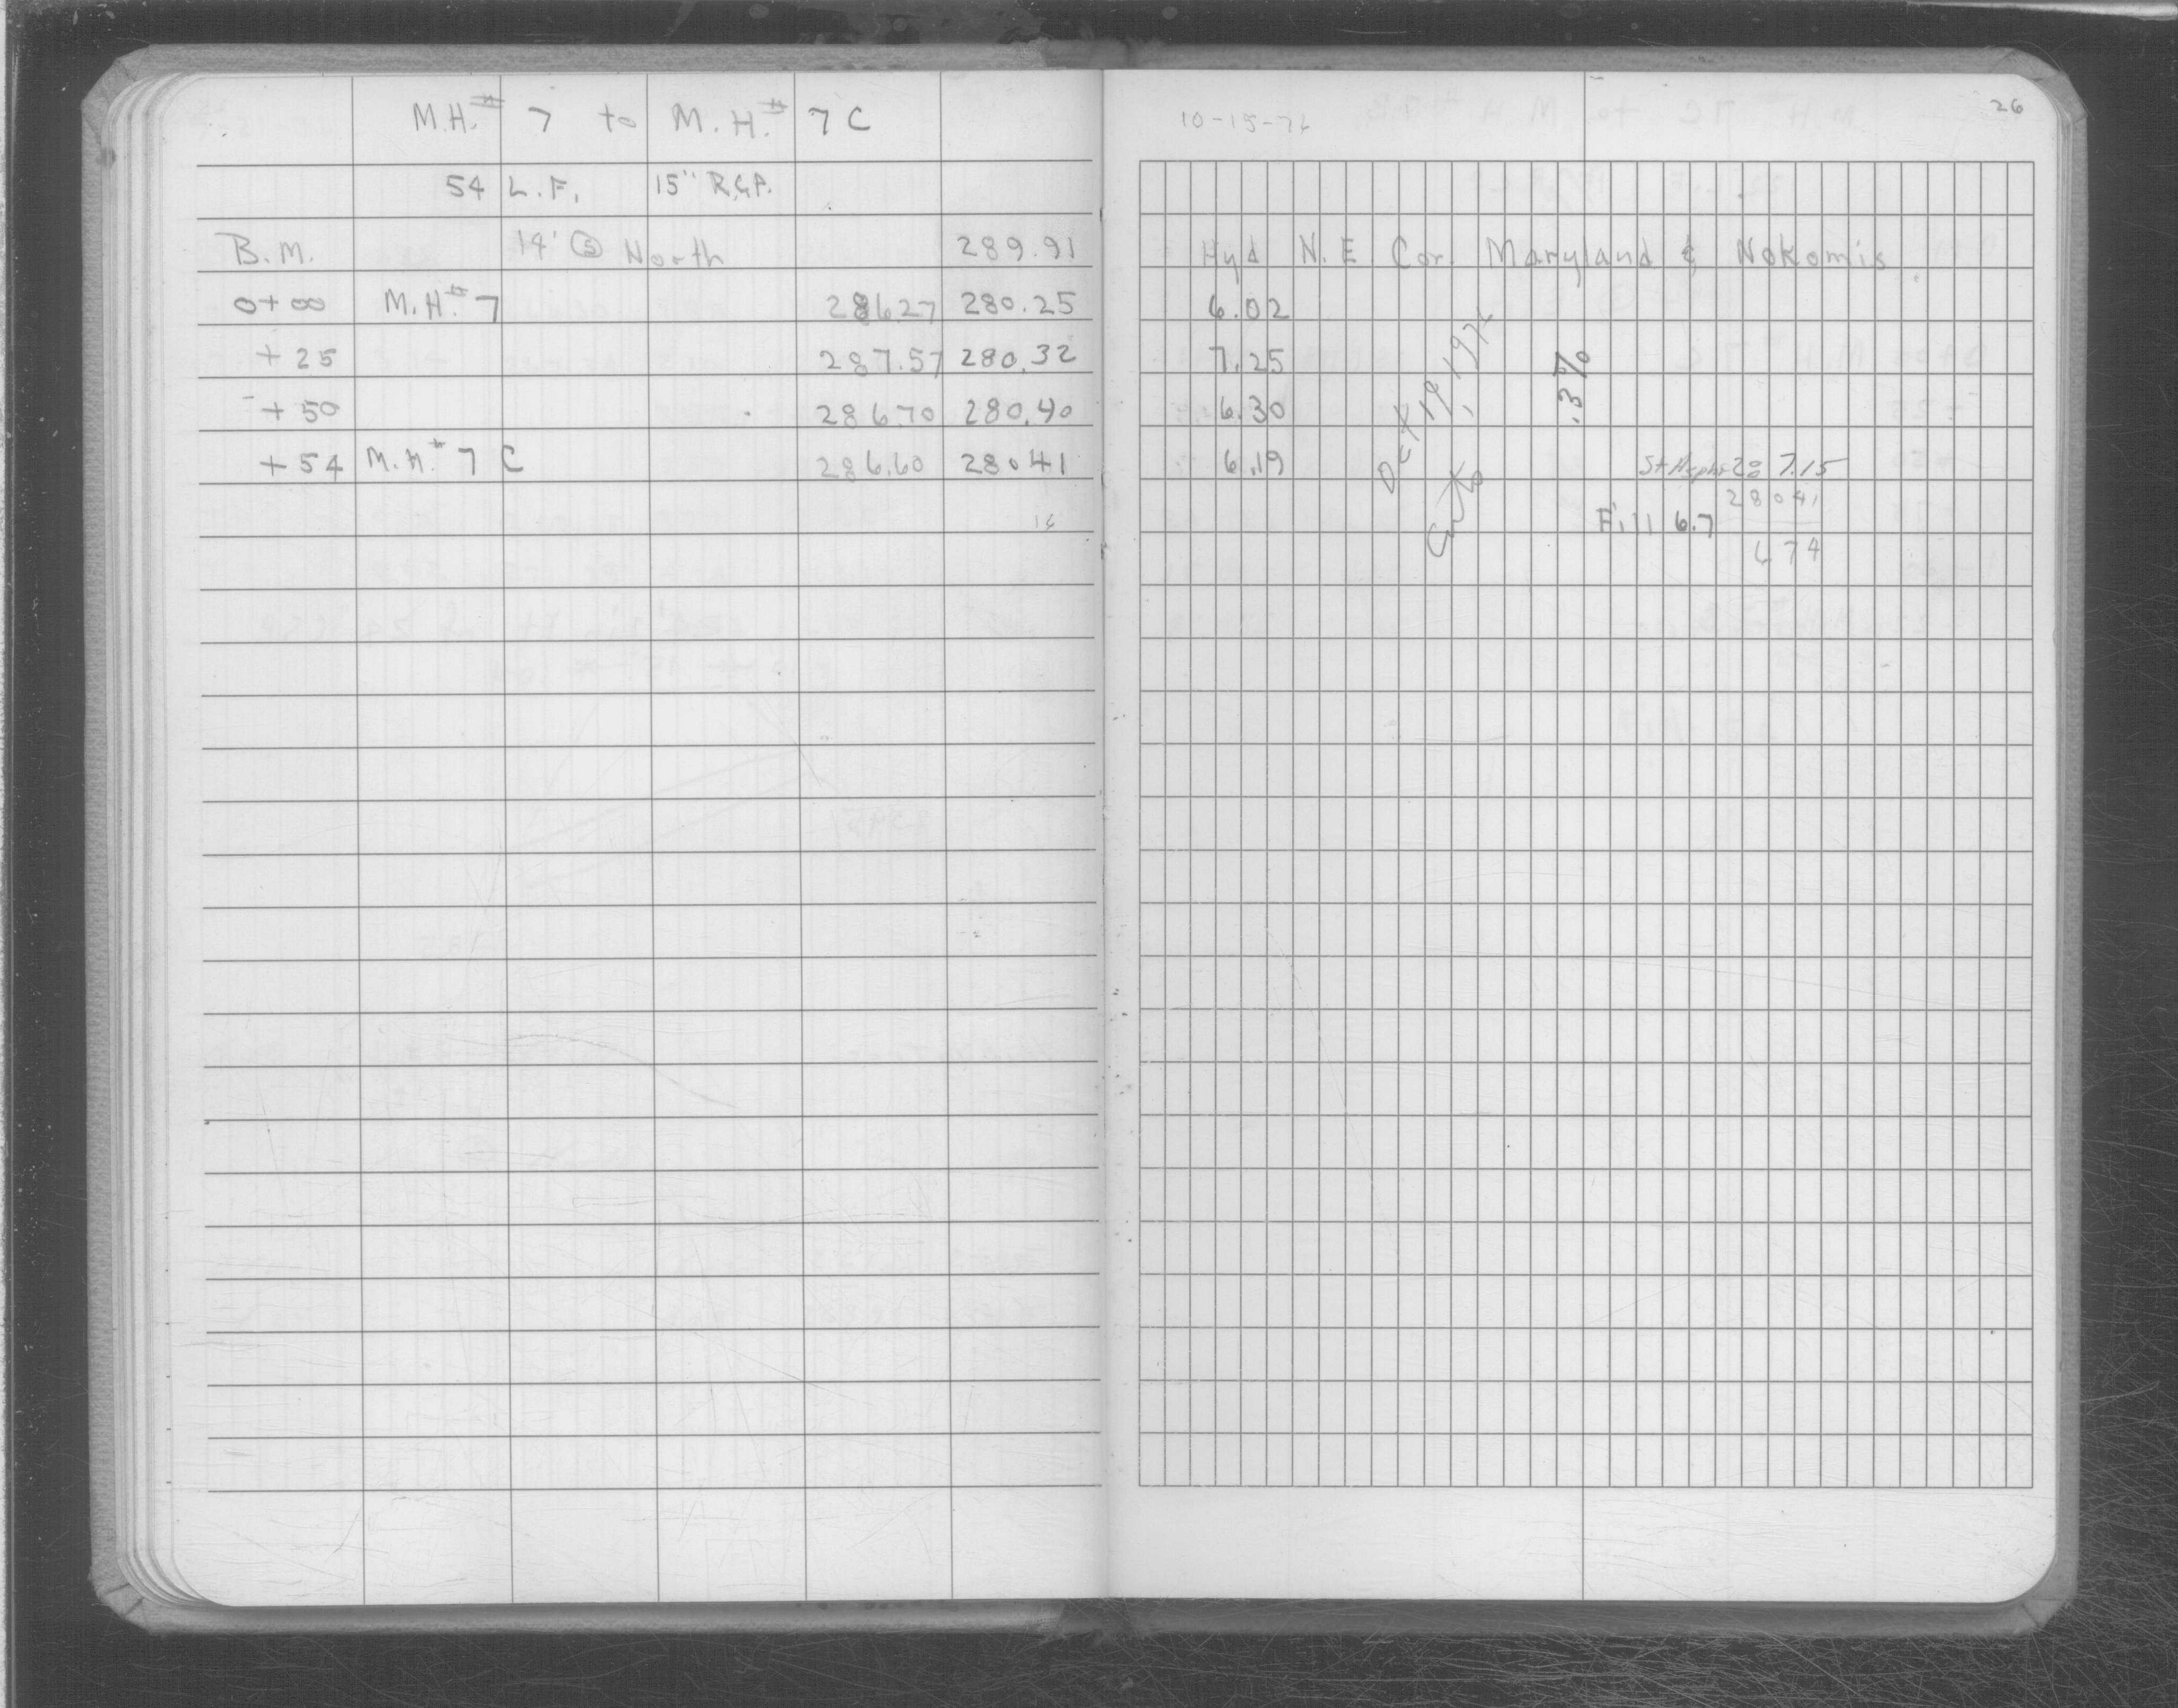 M.H.# 7 to M.H.# 7C
54 L.F. 15" R.C.P.
B.M. 14' @ North 289.91
0+00 M.H.# 7 286.27 280.25
+25 287.57 280.32
+50 286.70 280.40
+54 M.H.# 7C 286.60 280.41
16
26
10-15-76
Hyd N.E. Cor. Maryland & Nokomis
6.02
7.25
6.30
6.19
Oct 19, 1976
Cuts
.3%
287.15
280.41
Fill 6.7
6.74